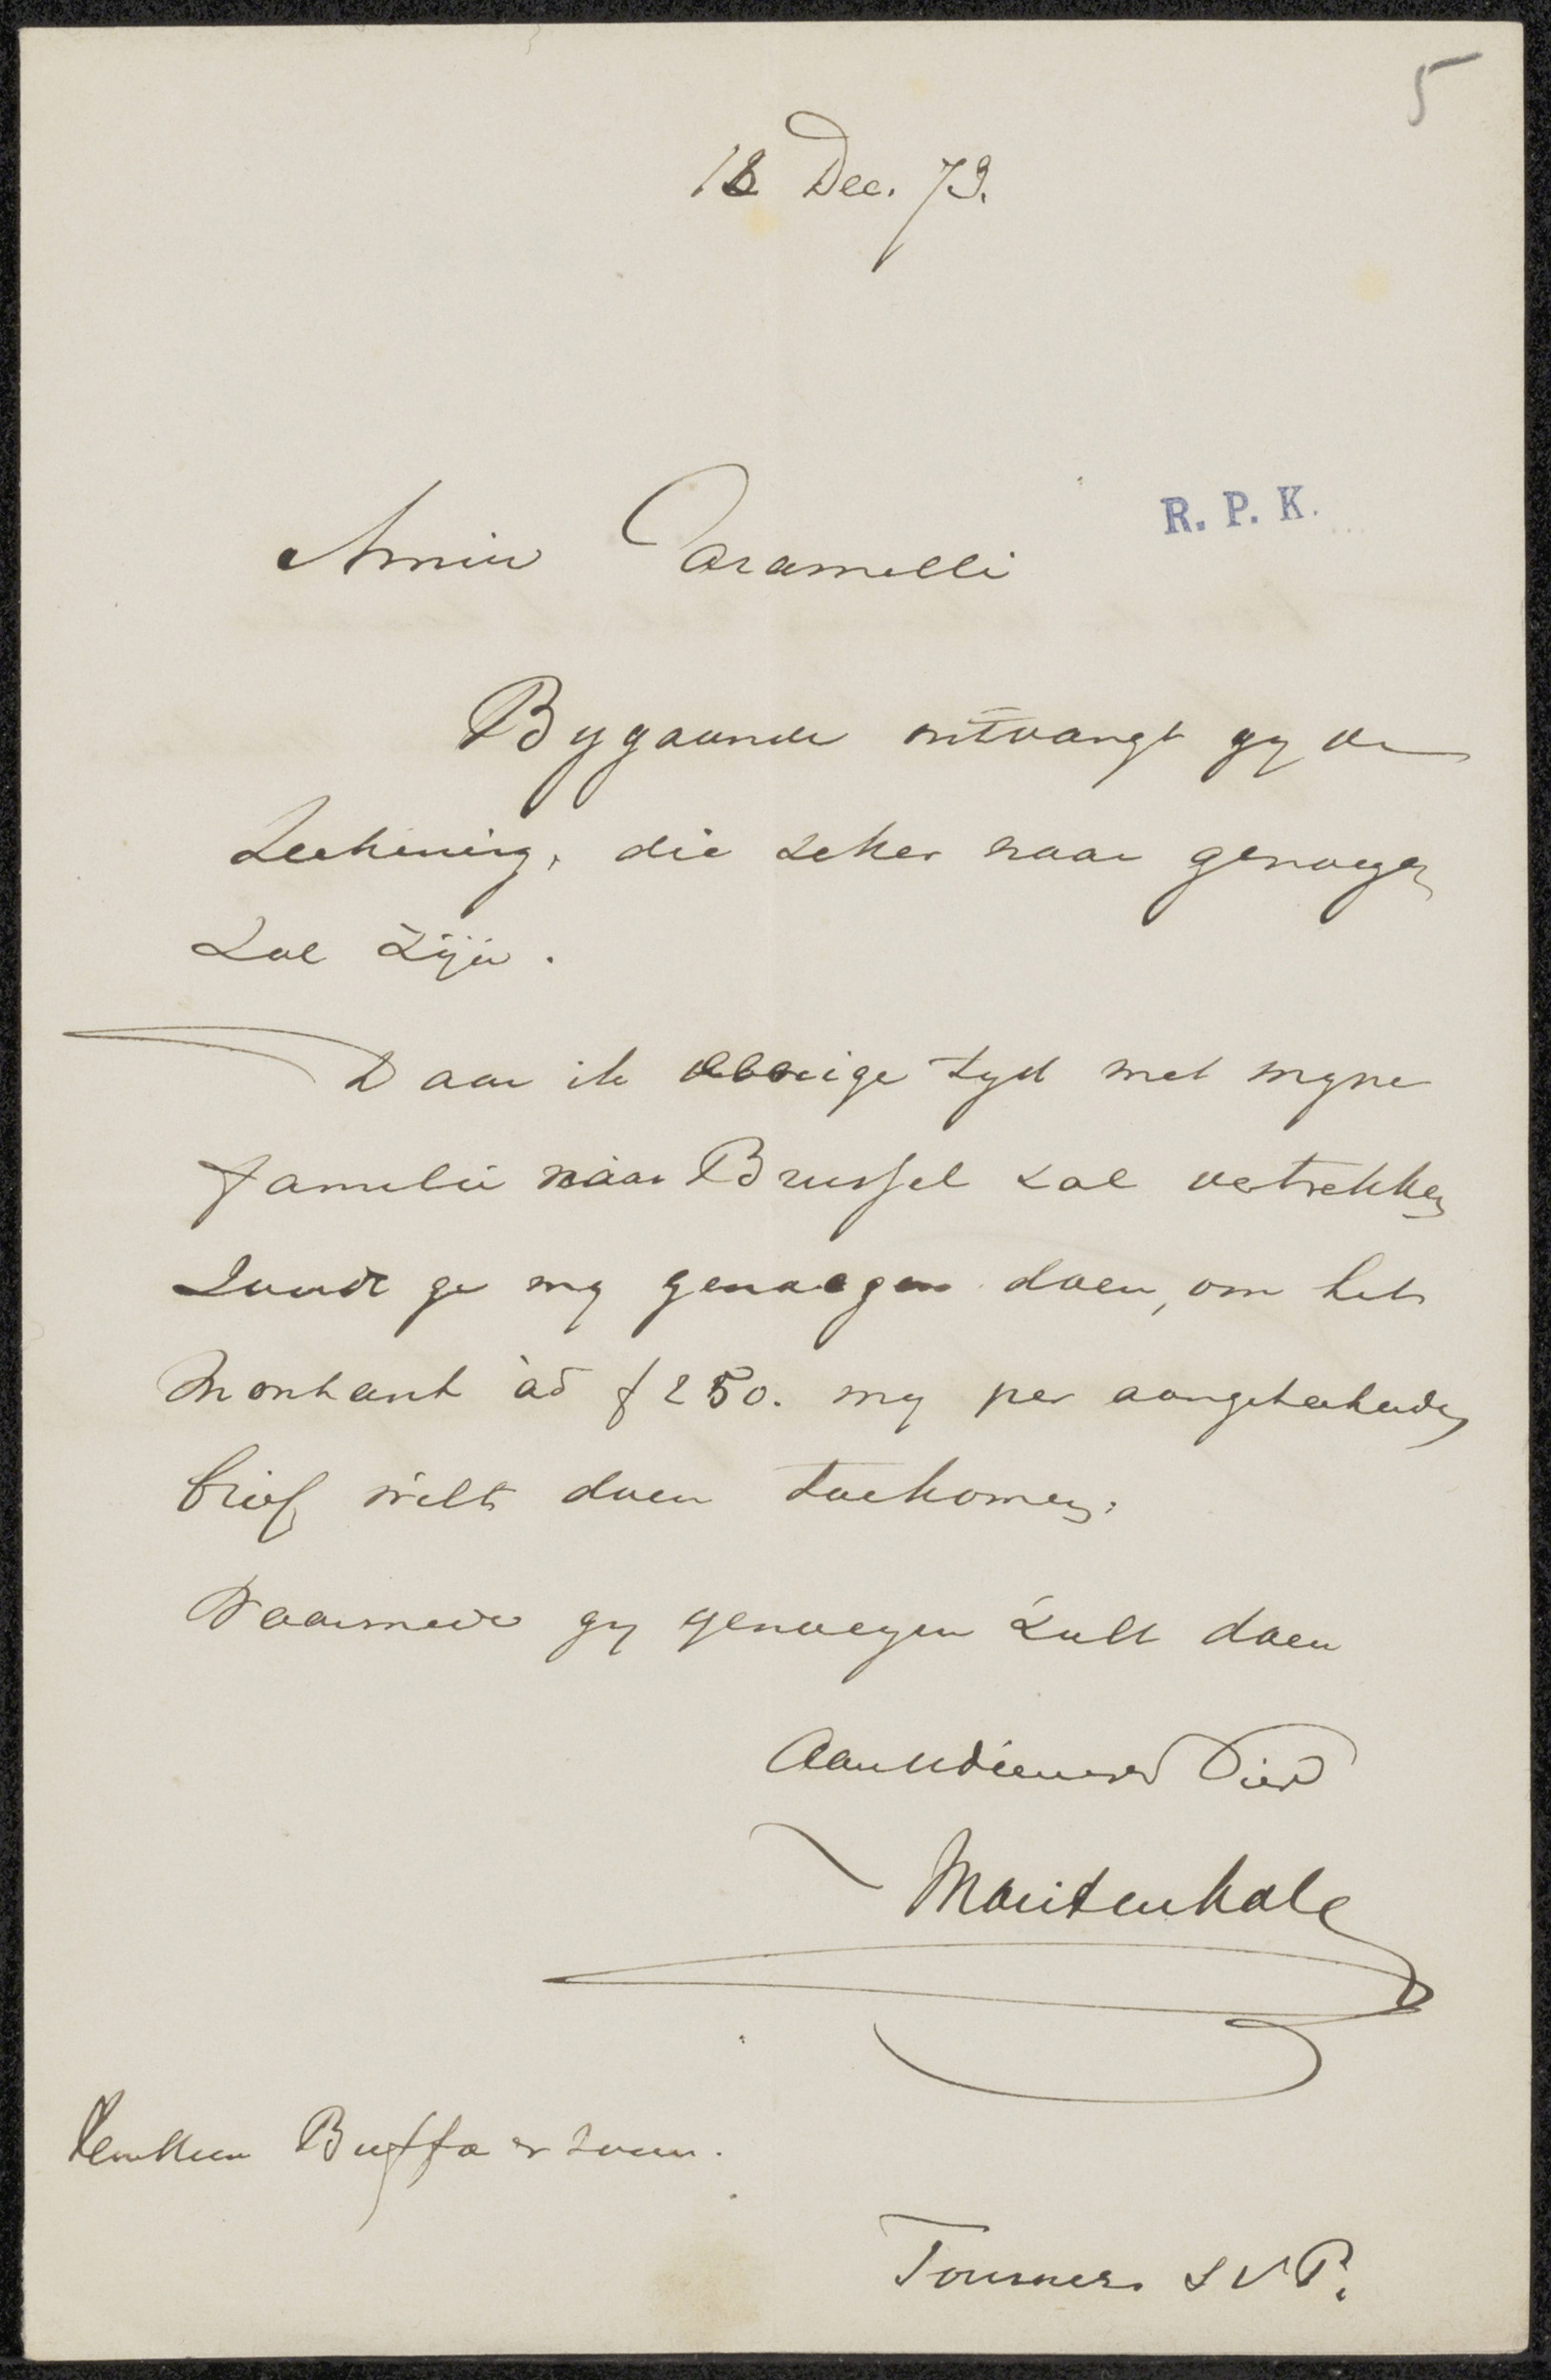 5
18 Dec. 79.
R. P. K.
Amice Caramelli
Bygaande ontvangt gy de
Teekening, die zeker naar genoegen
zal zijn.
Daar ik eenige tyd met myne
familie naar Brussel zal vertrekken
zoudt ge my genoegen doen, om het
montant àd f 250. my per aangeteekenden
brief wilt doen toekomen.
Waarmede gy genoegen zult doen
Mauritstenkate
Buffa en zoonen.
Tournez S V P.